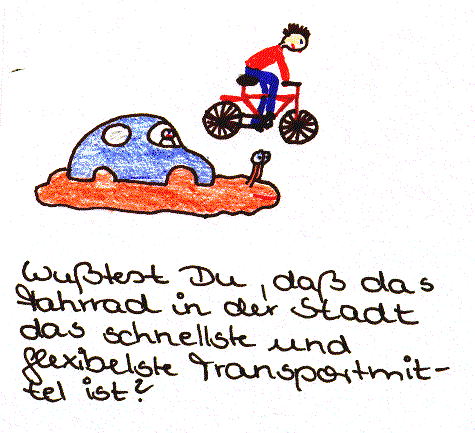 Wußtest Du, daß das
Fahrrad in der Stadt
das schnellste und
flexibelste Transportmit-
tel ist?